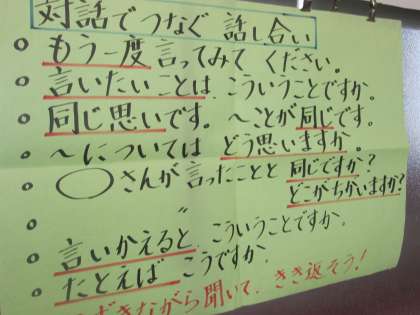 対話でつなぐ 話し合い
もう一度言ってみてください。
言いたいことは、こういうことですか。
同じ思いです。～ことが同じです。
～については どう思いますか。
○さんが言ったことと 同じですか?
〃 どこがちがいますか?
言いかえると、こういうことですか。
たとえば こうですか。
きながら聞いて、きき返そう!